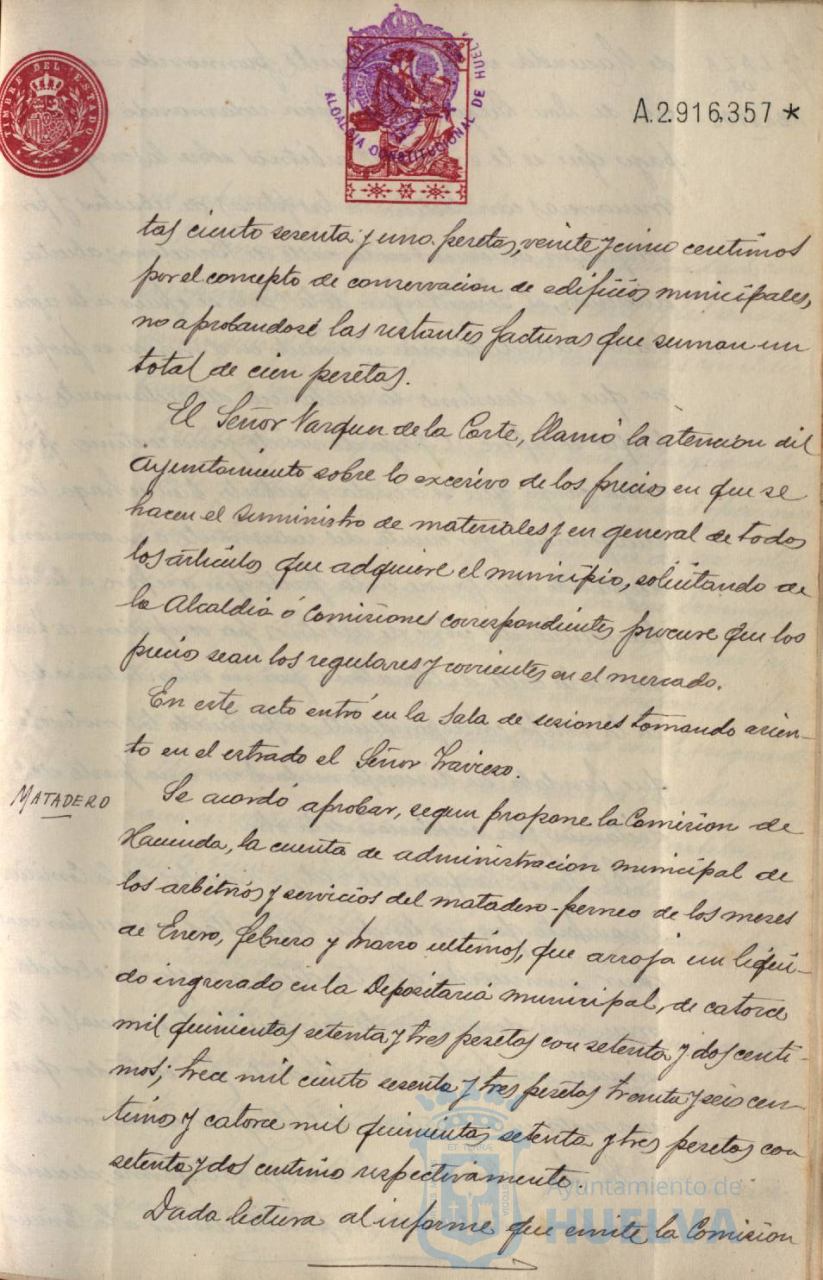 TIMBRE DEL ESTADO
ALCALDIA CONSTITUCIONAL DE HUEL
A.2.916,357 *
tas ciento sesenta y una pesetas, veinte y cinco centimos
por el concepto de conservacion de edificios municipales,
no aprobandose las restantes facturas que suman un
total de cien pesetas.
El Señor Vazquez de la Corte, llamó la atencion del
Ayuntamiento sobre lo excesivo de los precios en que se
hacen el suministro de materiales y en general de todos
los articulos que adquiere el municipio, solicitando de
la Alcaldia ó Comisiones correspondientes procure que los
precios sean los regulares y corrientes en el mercado.
En este acto entró en la Sala de sesiones tomando asien-
to en el estrado el Señor Travieso.
MATADERO
Se acordó aprobar, segun propone la Comision de
Hacienda, la cuenta de administracion municipal de
los arbitrios y servicios del matadero-perneo de los meses
de Enero, febrero y Marzo ultimos, que arroja un liqui-
do ingresado en la Depositaria municipal, de catorce
mil quinientas setenta y tres pesetas con setenta y dos centi-
mos; trece mil ciento sesenta y tres pesetas treinta y seis cen-
timos y catorce mil quinientas setenta y tres pesetas con
setenta y dos centimo respectivamente.
Dada lectura al informe que emite la Comision
Ayuntamiento de
HUELVA